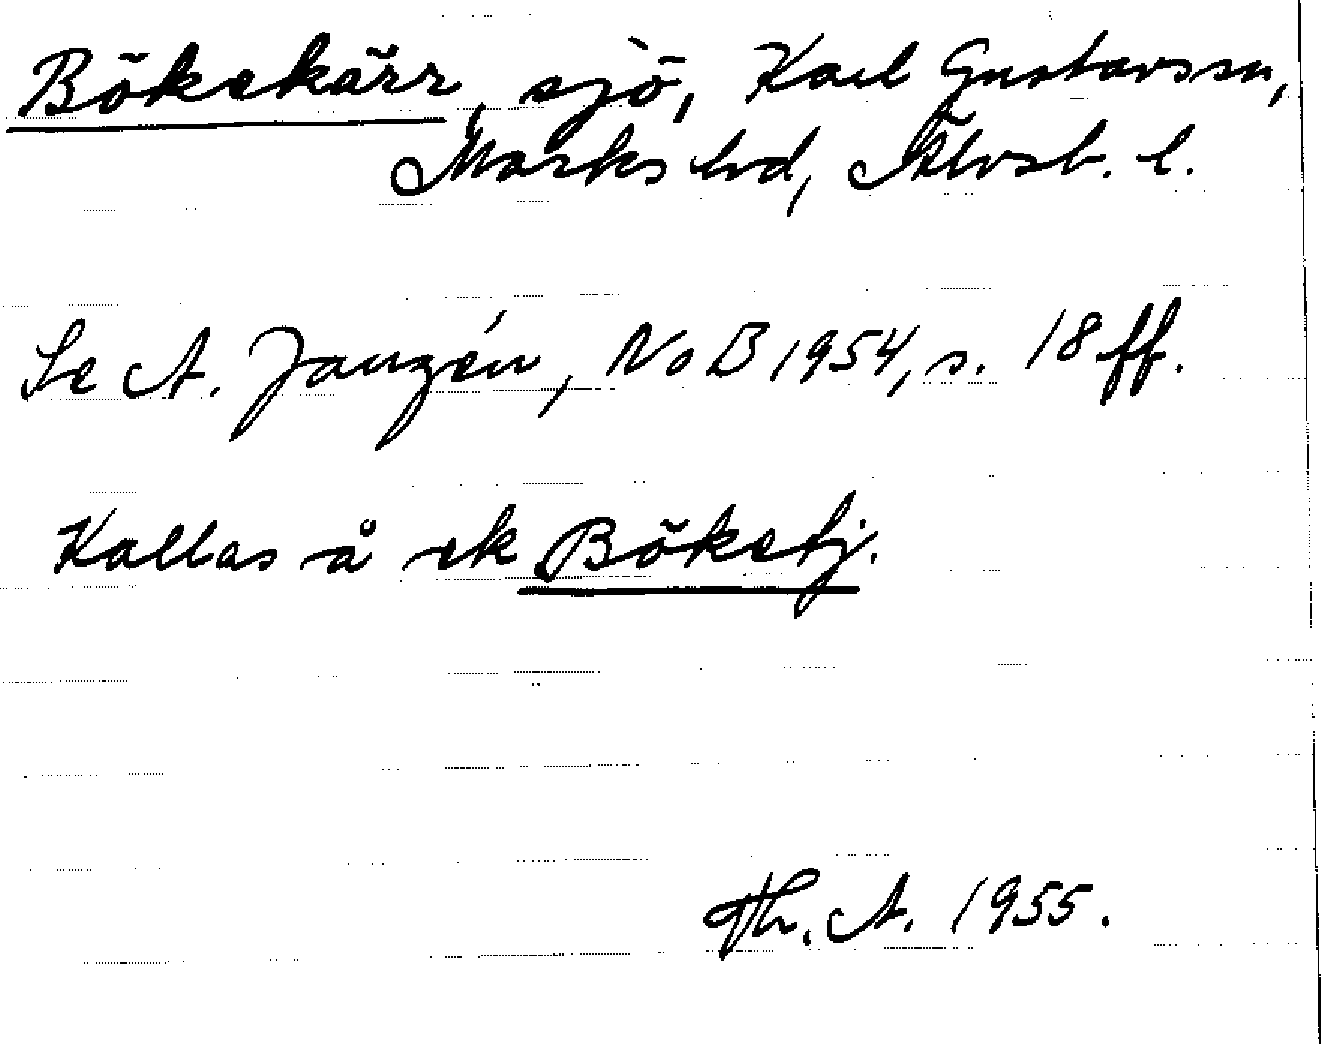 Bökekärr, sjö, Karl Gustavs sn,
Marks hd, Älvsb. l.
Se A. Janzén, NoB 1954, s. 18 ff.
Kallas å ek Böketj.
Th. A. 1955.